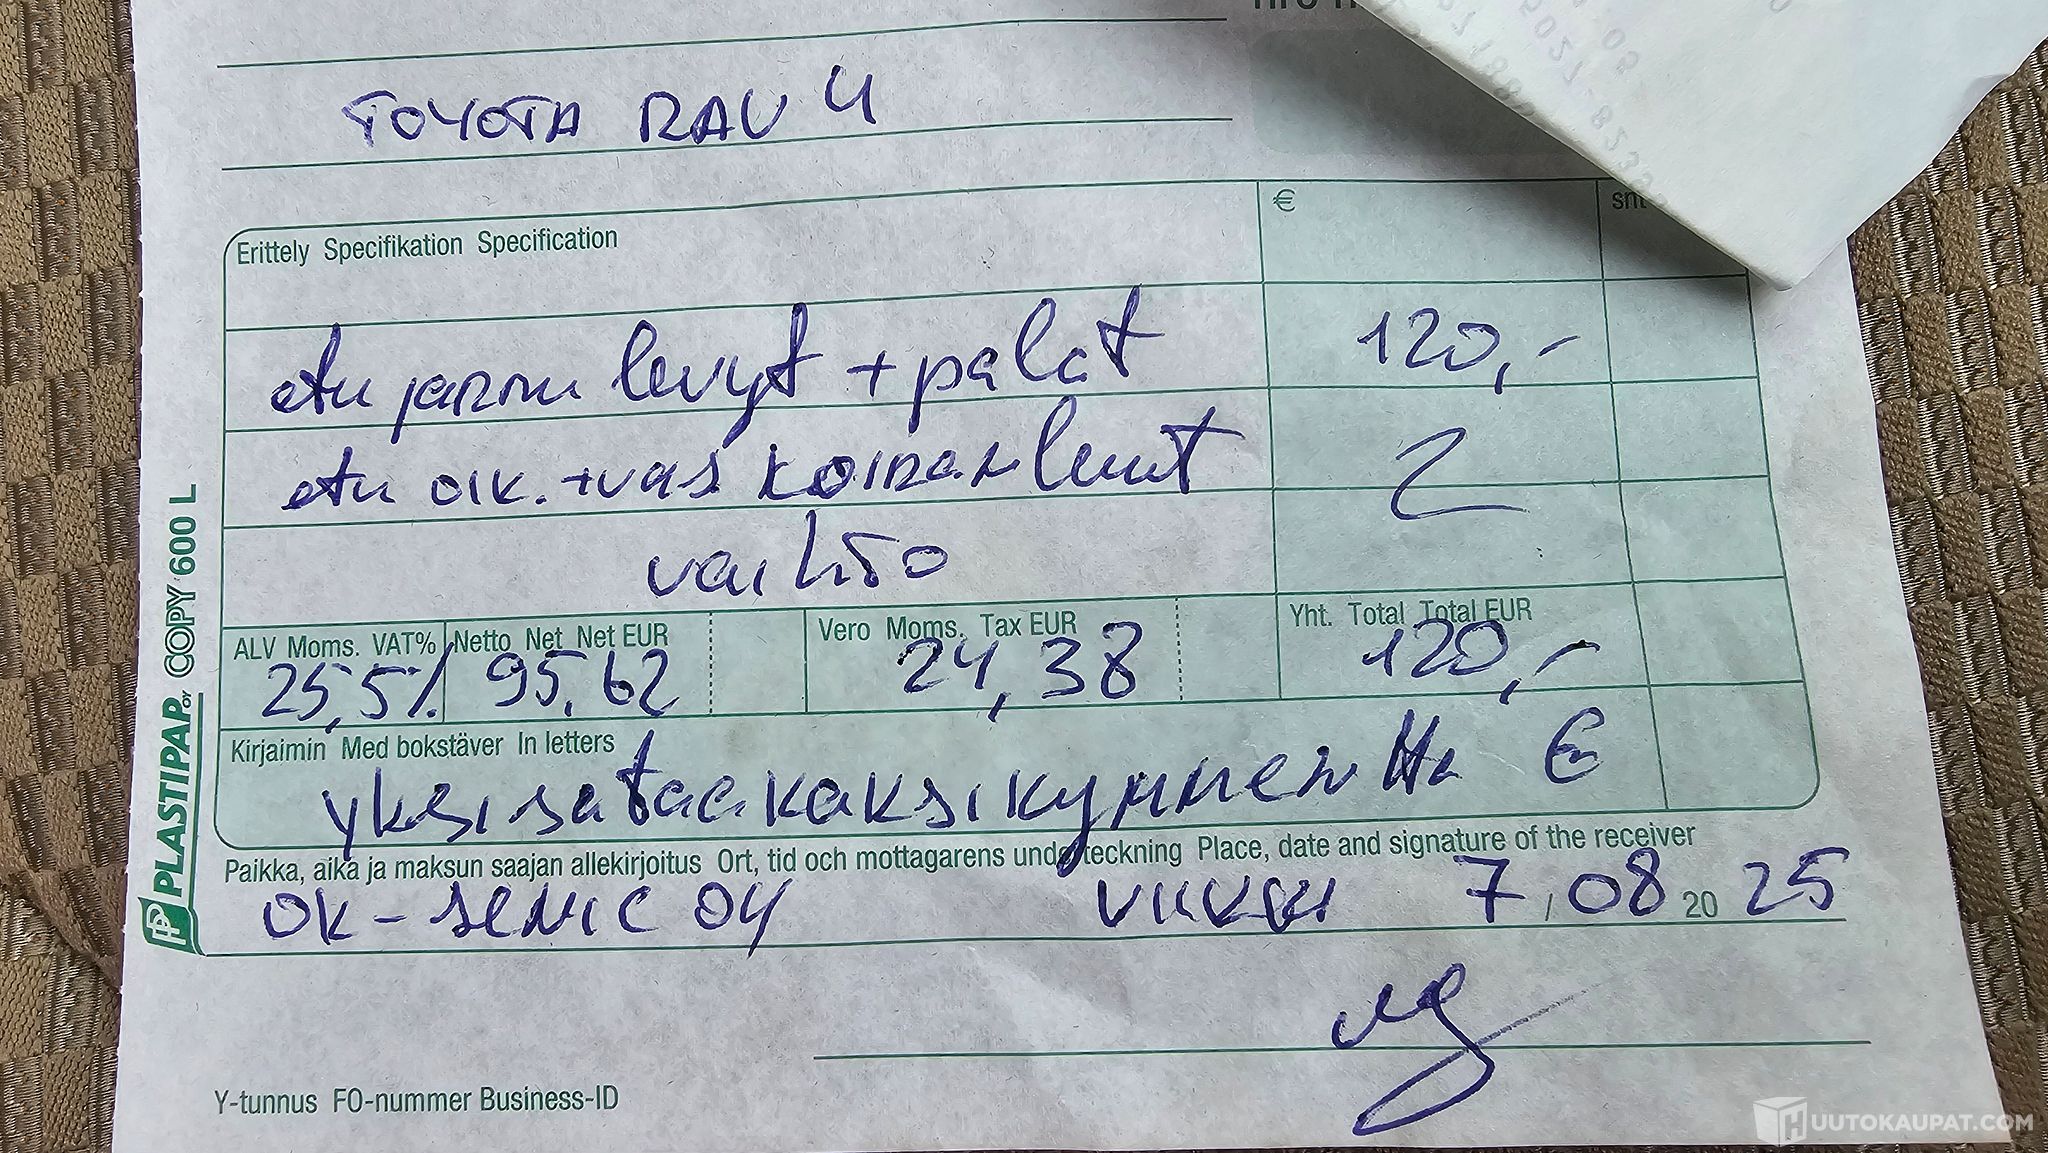 TOYOTA RAV 4
€ snt
Erittely Specifikation Specification
etu jarru levyt + palat 120,-
etu oik. + vas. koiranluut
vaihto
ALV Moms. VAT% Netto Net Net EUR Vero Moms. Tax EUR Yht. Total Total EUR
25,5% 95,62 24,38 120,-
Kirjaimin Med bokstäver In letters
yksisataakaksikymmentta €
Paikka, aika ja maksun saajan allekirjoitus Ort, tid och mottagarens underteckning Place, date and signature of the receiver
OK-SERVIC 04 7,08 20 25
Y-tunnus FO-nummer Business-ID
PLASTIPAP OY COPY 600 L
HUUTOKAUPAT.COM